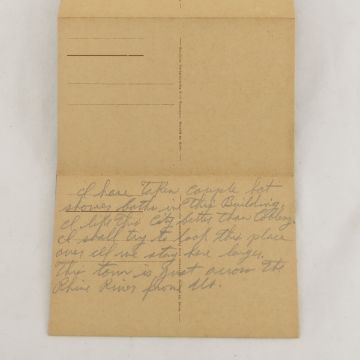 I have taken couple hot
shower baths in this Building,
I like this City better than Coblenz.
I shall try to look this place
over if we stay here longer.
This town is just across the
Rhine River from us.